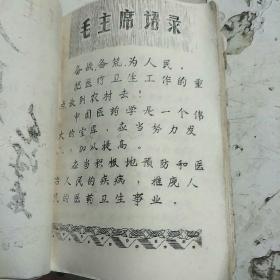 毛主席语录
备战、备荒、为人民。
把医疗卫生工作的重
点放到农村去!
中国医药学是一个伟
大的宝库,应当努力发
,加以提高。
应当积极地预防和医
治人民的疾病,推广人
民的医药卫生事业。